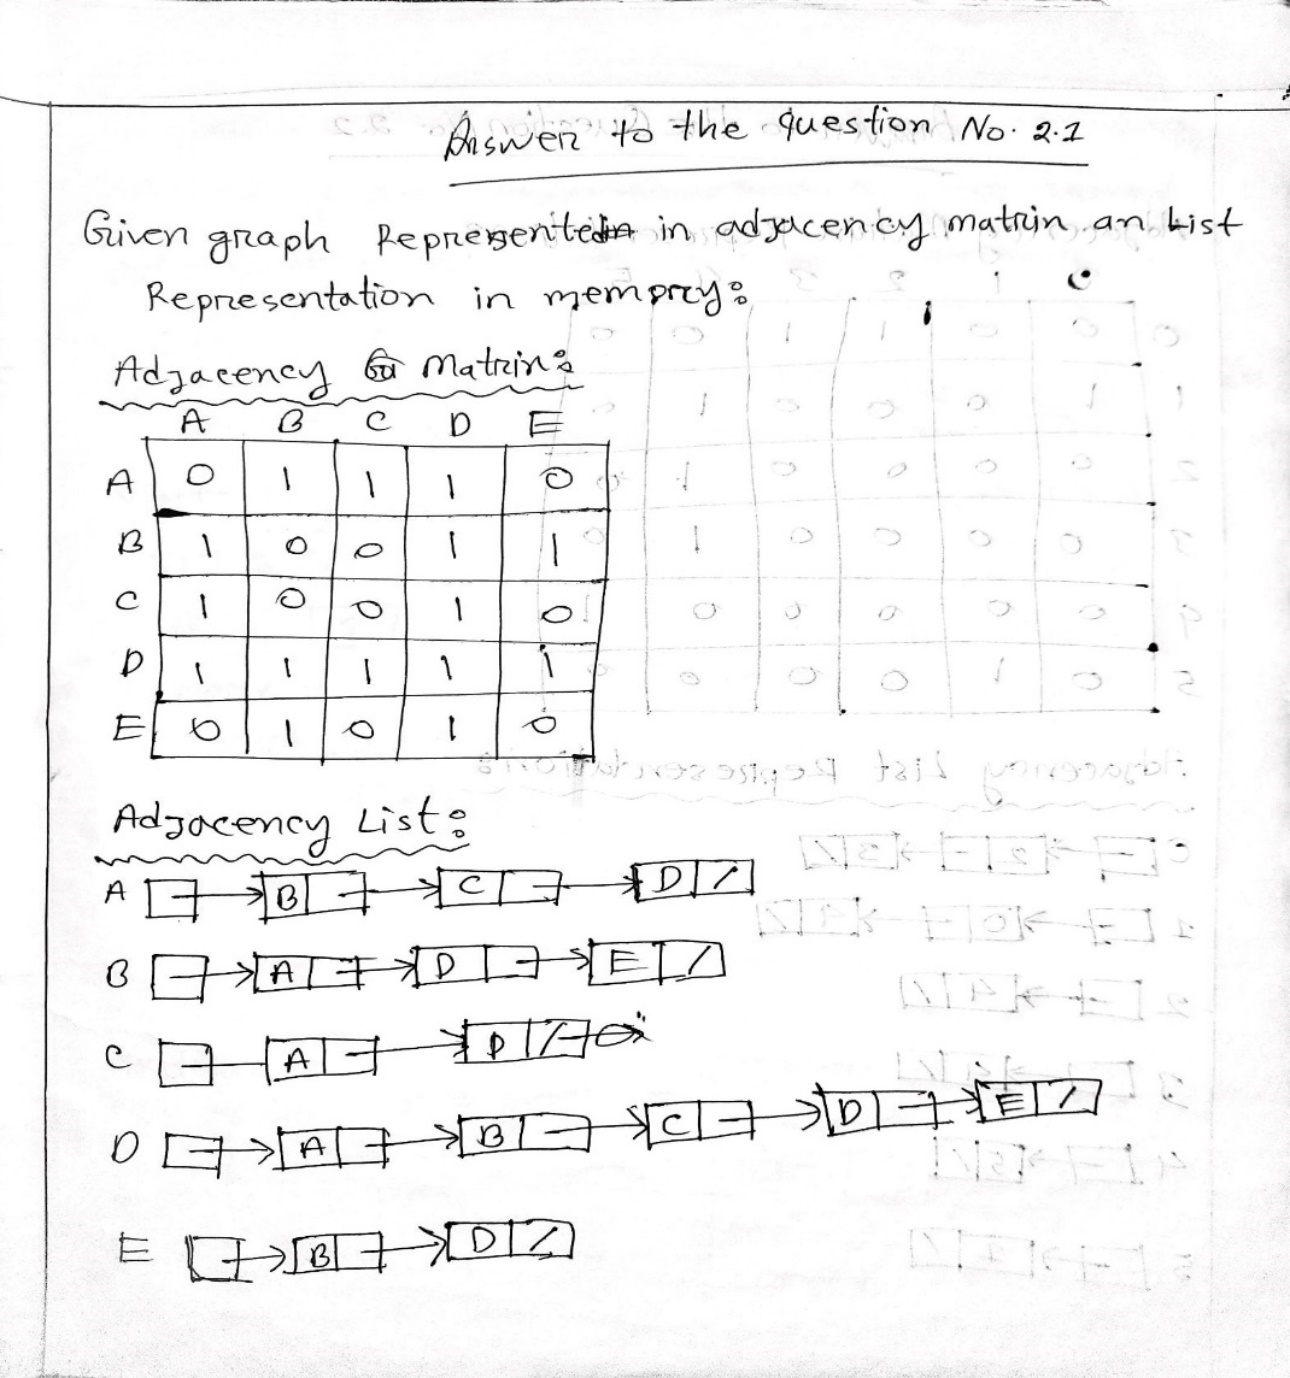 Answer to the question No. 2.1
Given graph Represented in adjacency matrix an List
Representation in memory:
Adjacency Matrix:
A B C D E
A 0 1 1 1 0
B 1 0 0 1 1
C 1 0 0 1 0
D 1 1 1 1 1
E 0 1 0 1 0
Adjacency List:
A → B → C → D /
B → A → D → E /
C — A → D /
D → A → B → C → D → E /
E → B → D /